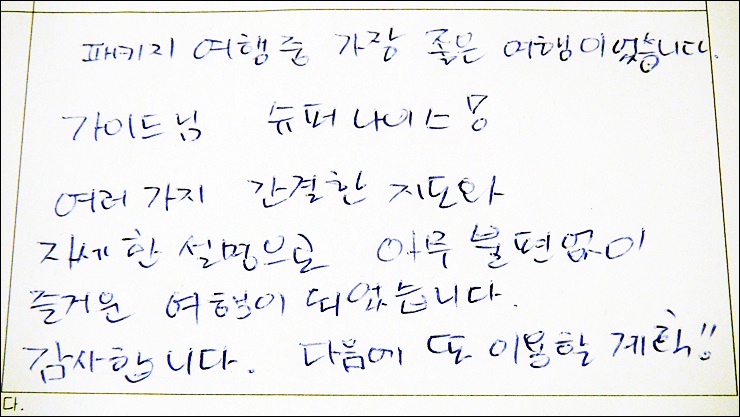 패키지 여행중 가장 좋은 여행이었습니다.
가이드님 슈퍼나이스!
여러 가지 간결한 지도와
자세한 설명으로 아무 불편없이
즐거운 여행이 되었습니다.
감사합니다. 다음에 또 이용할 계획!!
다.